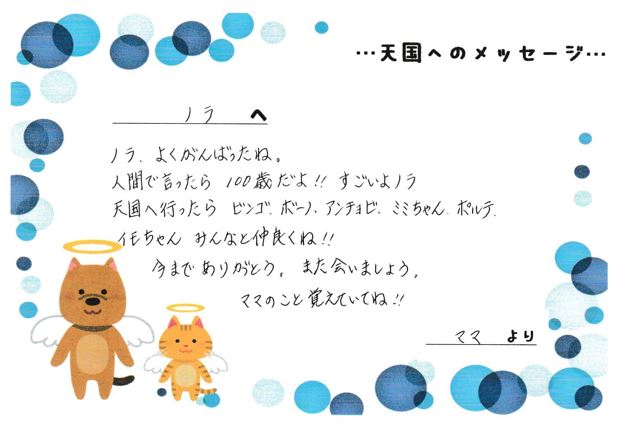 …天国へのメッセージ…
ノラ へ
ノラ、よくがんばったね。
人間で言ったら 100歳だよ!! すごいよノラ
天国へ行ったら ビンゴ、ボーノ、アンチョビ、ミミちゃん、ポルテ、
イモちゃん みんなと仲良くね!!
今までありがとう。また会いましょう。
ママのこと覚えていてね!!
ママ より